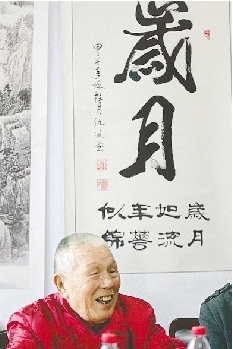 歲月
甲午年
歲月
如流
年華
似錦